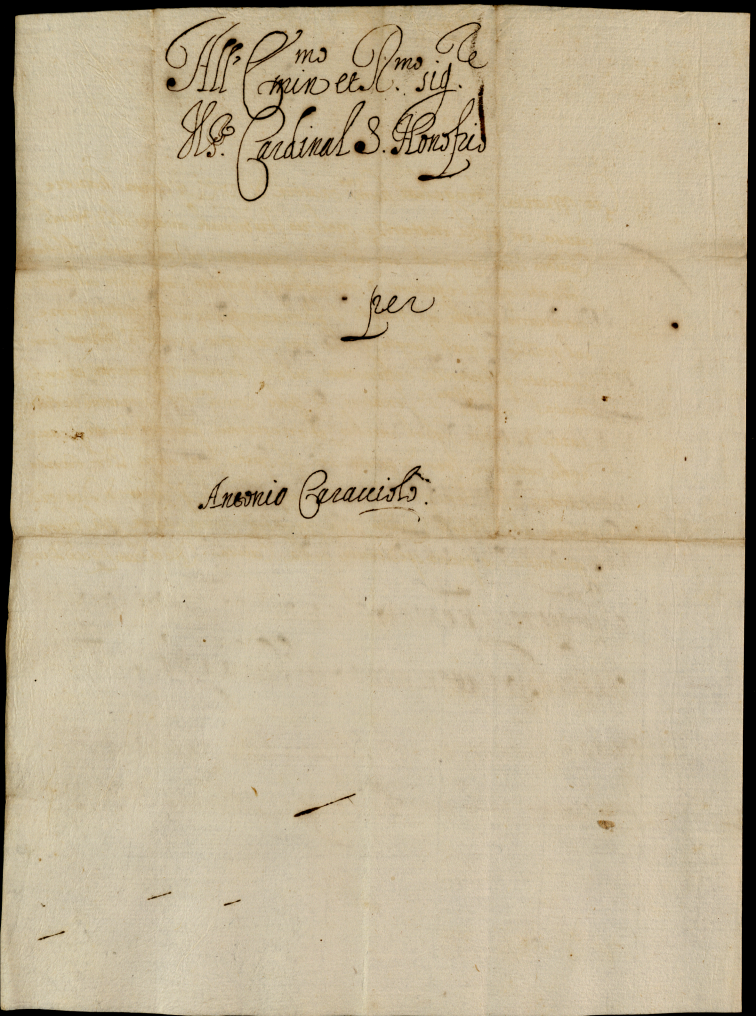 All' E^mo min et R.^mo sig.^re
Il Sig.^r Cardinal S. Honofrio
per
Antonio Caracciolo.